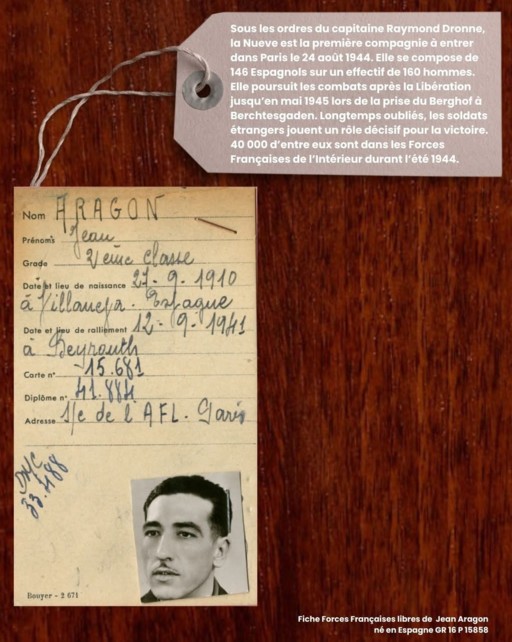 Sous les ordres du capitaine Raymond Dronne,
la Nueve est la première compagnie à entrer
dans Paris le 24 août 1944. Elle se compose de
146 Espagnols sur un effectif de 160 hommes.
Elle poursuit les combats après la Libération
jusqu'en mai 1945 lors de la prise du Berghof à
Berchtesgaden. Longtemps oubliés, les soldats
étrangers jouent un rôle décisif pour la victoire.
40 000 d'entre eux sont dans les Forces
Françaises de l'Intérieur durant l'été 1944.
Nom ARAGON
Prénoms Jean
Grade 2ème classe
Date et lieu de naissance 27-9-1910
à Espagne
Date et lieu de ralliement 12-9-1941
à Beyrouth
Carte n° 15.681
Diplôme n° 41.884
Adresse de l'AFL. Paris
33.488
Bouyer - 2 671
Fiche Forces Françaises libres de Jean Aragon
né en Espagne GR 16 P 15858